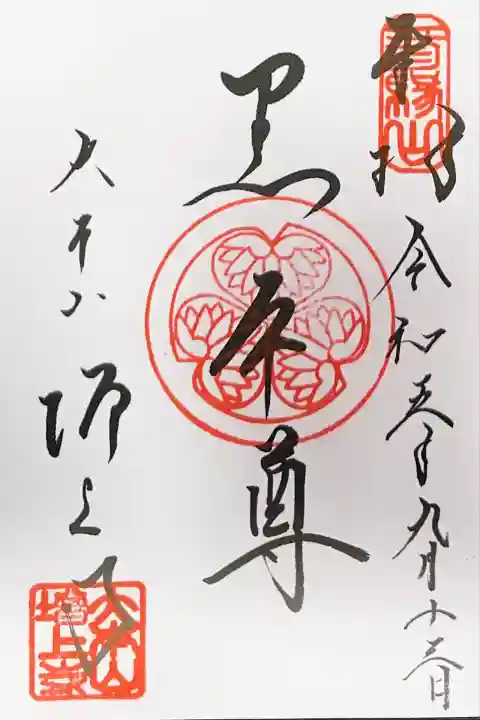 奉拝 令和五年九月十三日
黒本尊
大本山 増上寺
三縁山
大本山増上寺